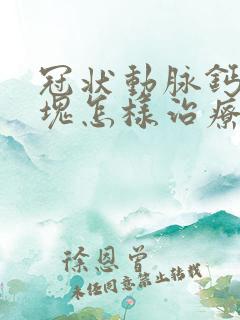 冠狀動脈鈣
塊怎樣治療
徐恩曾
未經同意禁止轉載